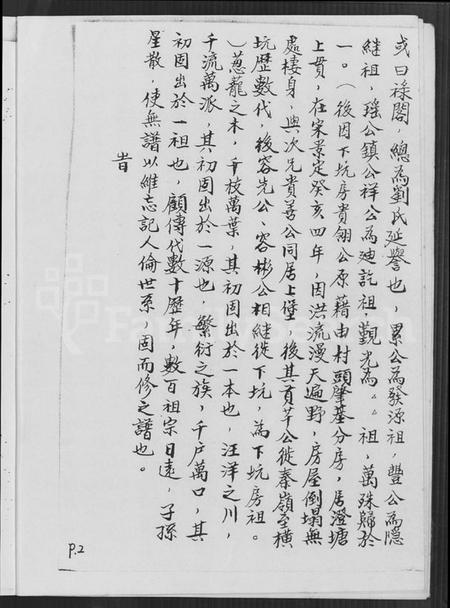 或曰祿閣，總為劉氏延譽也，累公為發源祖，豐公為隱
継祖，瑶公鎮公祥公為廸訖祖，觀光為〻〻祖，萬殊歸於
一。（後因下坑房貴翎公原藉由村頭肇基分房，居澄塘
上貫，在宋景定癸亥四年，因洪流漫天遍野，房屋倒塌無
處棲身，與次兄貴善公同居上堡 後其貢芊公徙秦嶺至橫
坑歷數代，後容先公、容彬公相継徙下坑，為下坑房祖。
）蔥龍之木，千枝萬葉，其初固出於一本也，汪洋之川，
千流萬派，其初固出於一源也，繁衍之族，千户萬口，其
初固出於一祖也，顧傳代數十歷年，數百祖宗日遠，子孫
星散，使無譜以維忘記人倫世系，固而修之譜也。
旹
P.2
FamilySearch